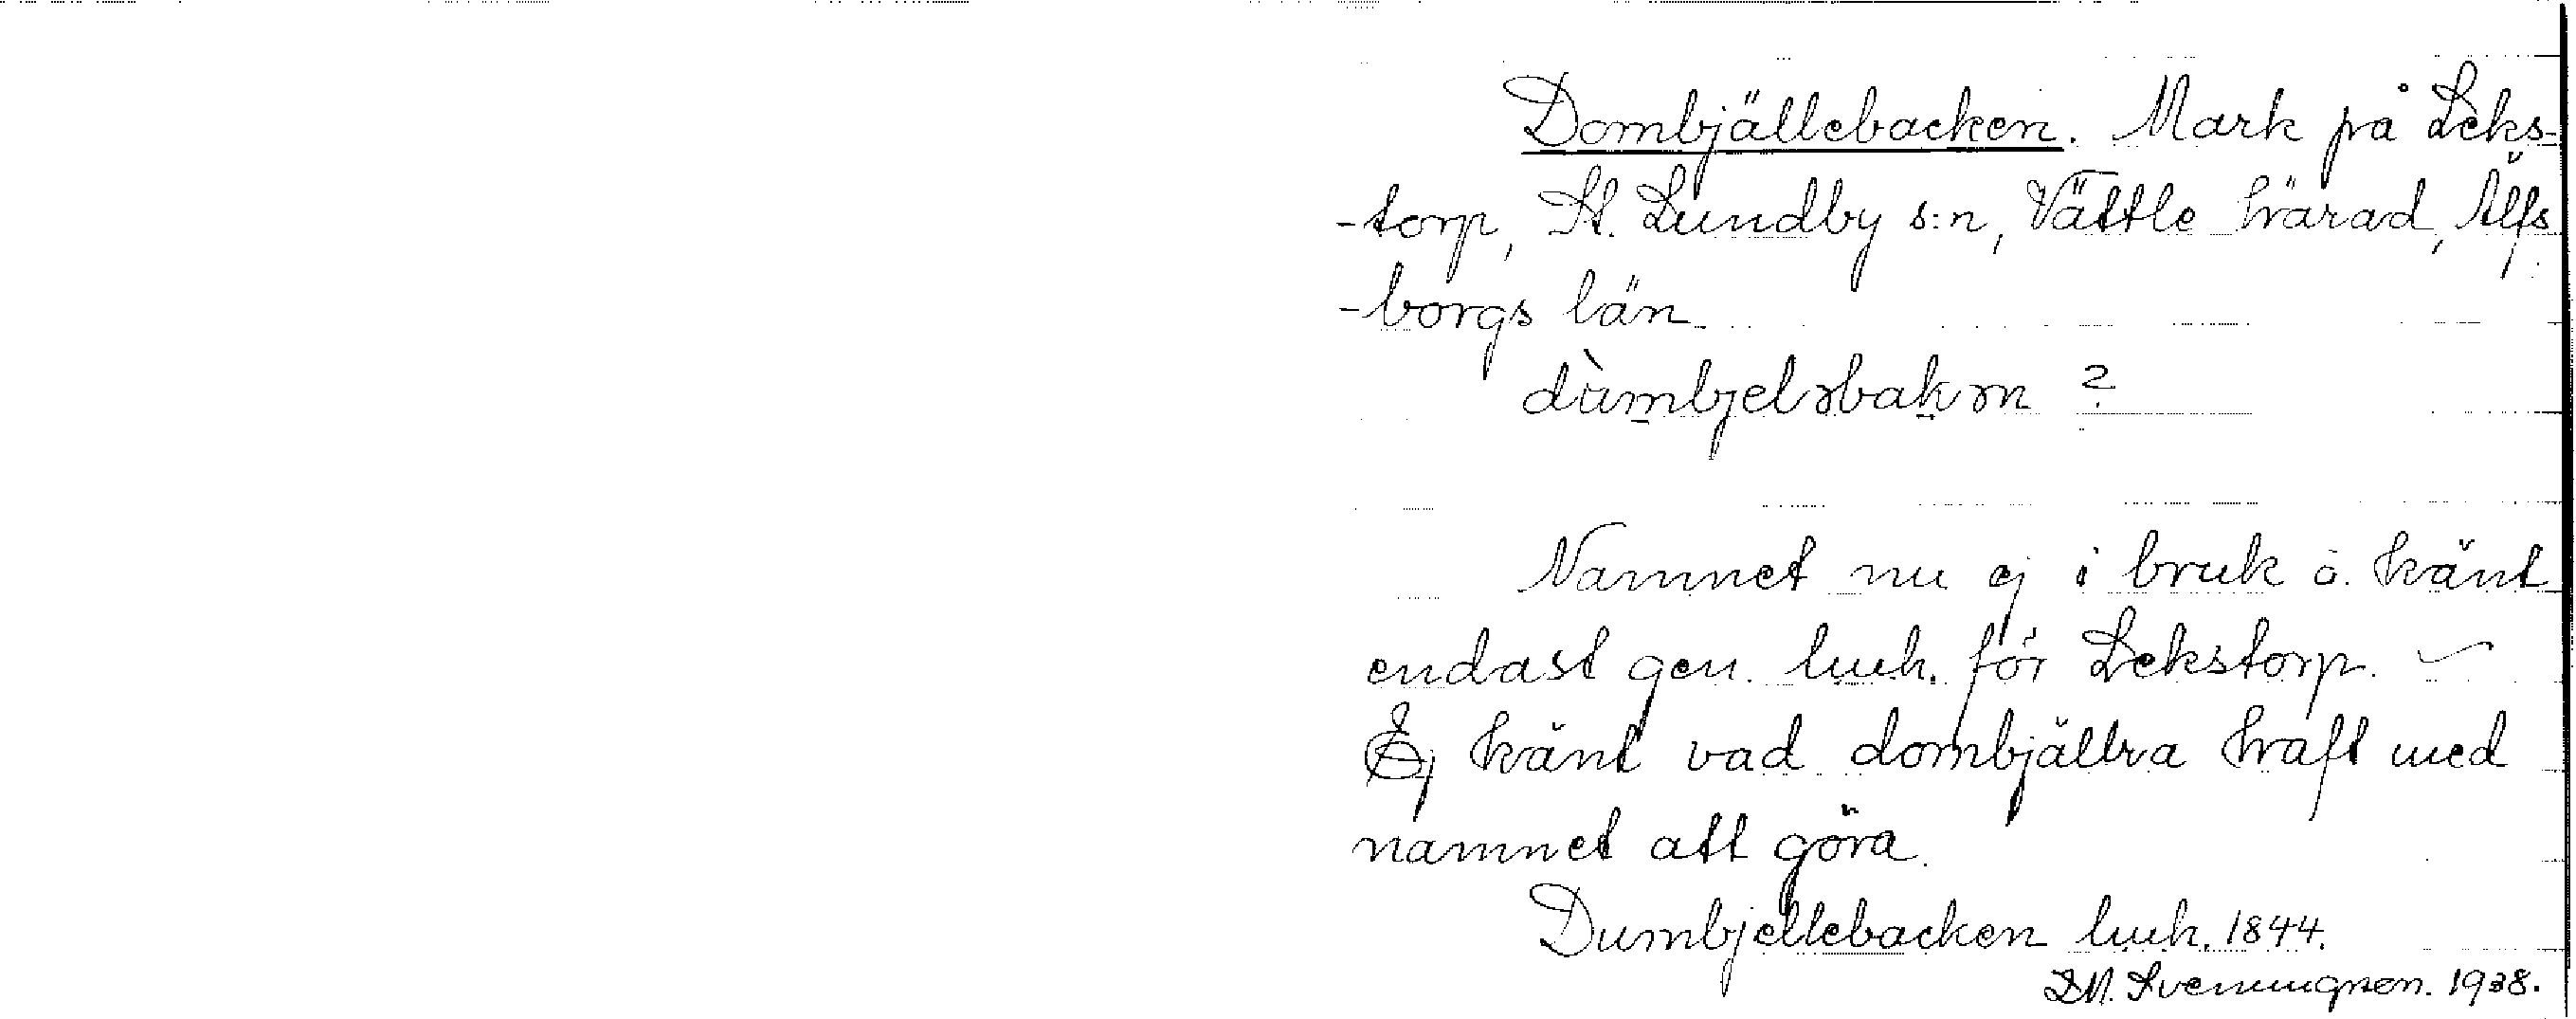 Dombjällebacken. Mark på Leks-
-torp, St. Lundby s:n, Vättle härad, Älfs
-borgs län.
dùmbjeləbakən ?
Namnet nu ej i bruk o. känt
endast gen. luh. för Lekstorp.
Ej känt vad dombjällra haft med
namnet att göra.
Dumbjellebacken luh. 1844.
Svenungsson. 1938.